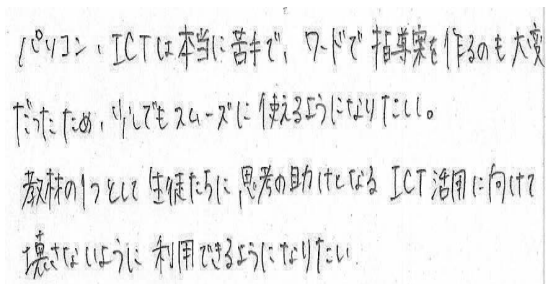 パソコン、ICTは本当に苦手で、ワードで指導案を作るのも大変
だったため、少しでもスムーズに使えるようになりたい。
教材の1つとして生徒たちに、思考の助けとなるICT活用に向けて
壊さないように利用できるようになりたい